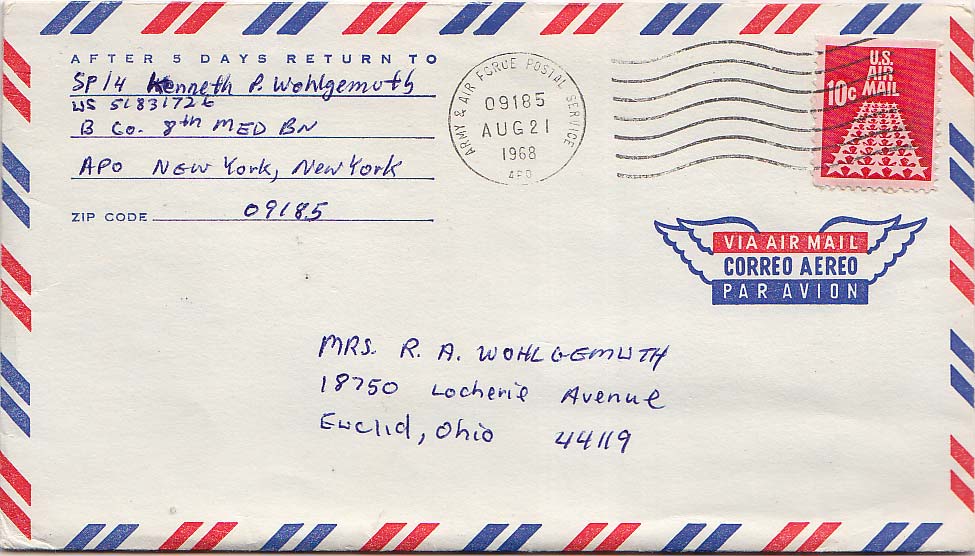 AFTER 5 DAYS RETURN TO
SP/4 Kenneth P. Wohlgemuth
US 51831726
B Co. 8th MED BN
APO NEW York, NEW York
ZIP CODE 09185
ARMY & AIR FORCE POSTAL SERVICE
09185
AUG 21
1968
APO
U.S.
AIR
10c MAIL
VIA AIR MAIL
CORREO AEREO
PAR AVION
MRS. R. A. WOHLGEMUTH
18750 Locherie Avenue
Euclid, Ohio 44119